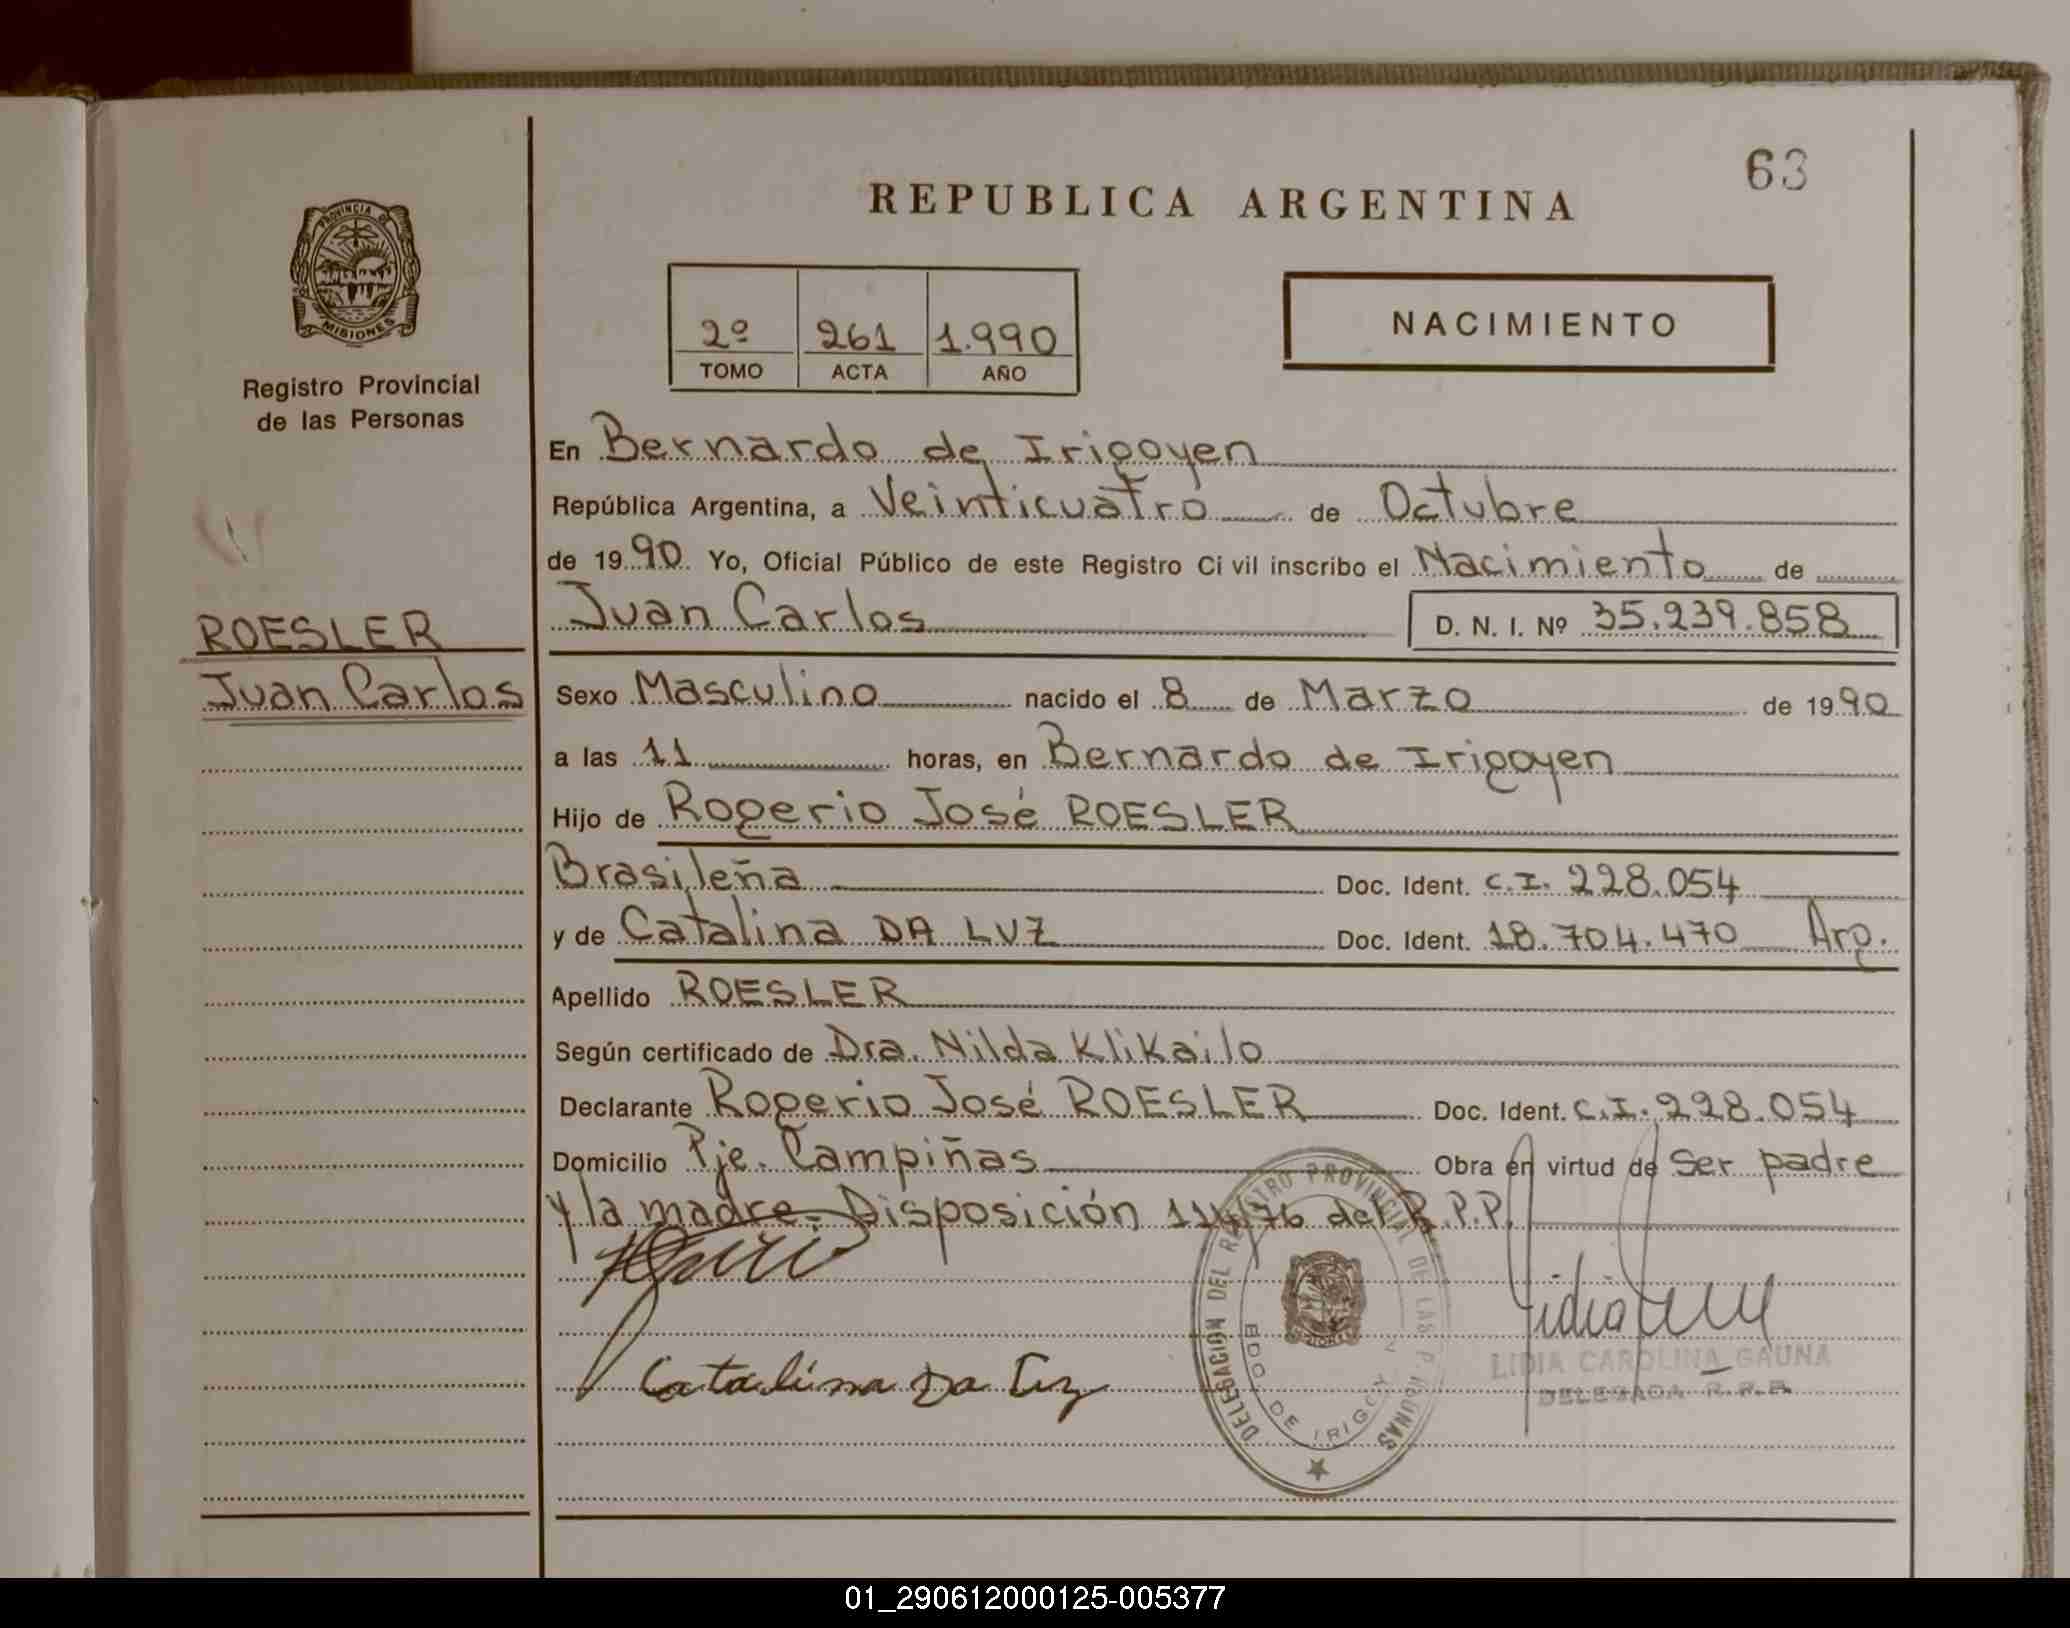 63
REPUBLICA ARGENTINA
PROVINCIA DE
MISIONES
Registro Provincial
de las Personas
2º 261 1.990
TOMO ACTA AÑO
NACIMIENTO
ROESLER
Juan Carlos
En Bernardo de Irigoyen
República Argentina, a Veinticuatro de Octubre
de 1990 Yo, Oficial Público de este Registro Ci vil inscribo el Nacimiento de
Juan Carlos D. N. I. Nº 35.239.858
Sexo Masculino nacido el 8 de Marzo de 1990
a las 11 horas, en Bernardo de Irigoyen
Hijo de Rogerio José ROESLER
Brasileña Doc. Ident. C.I. 228.054
y de Catalina DA LUZ Doc. Ident. 18.704.470 Arg.
Apellido ROESLER
Según certificado de Dra. Nilda Klikailo
Declarante Rogerio José ROESLER Doc. Ident. C.I. 228.054
Domicilio Pje. Campiñas Obra en virtud de Ser padre
y la madre. Disposición 114/76 del R.P.P.
Catalina Da Luz
DELEGACION DEL REGISTRO PROVINCIAL DE LAS PERSONAS
BDO. DE IRIGOYEN
Lidia
LIDIA CAROLINA GAUNA
DELEGADA R.P.P.
01_290612000125-005377